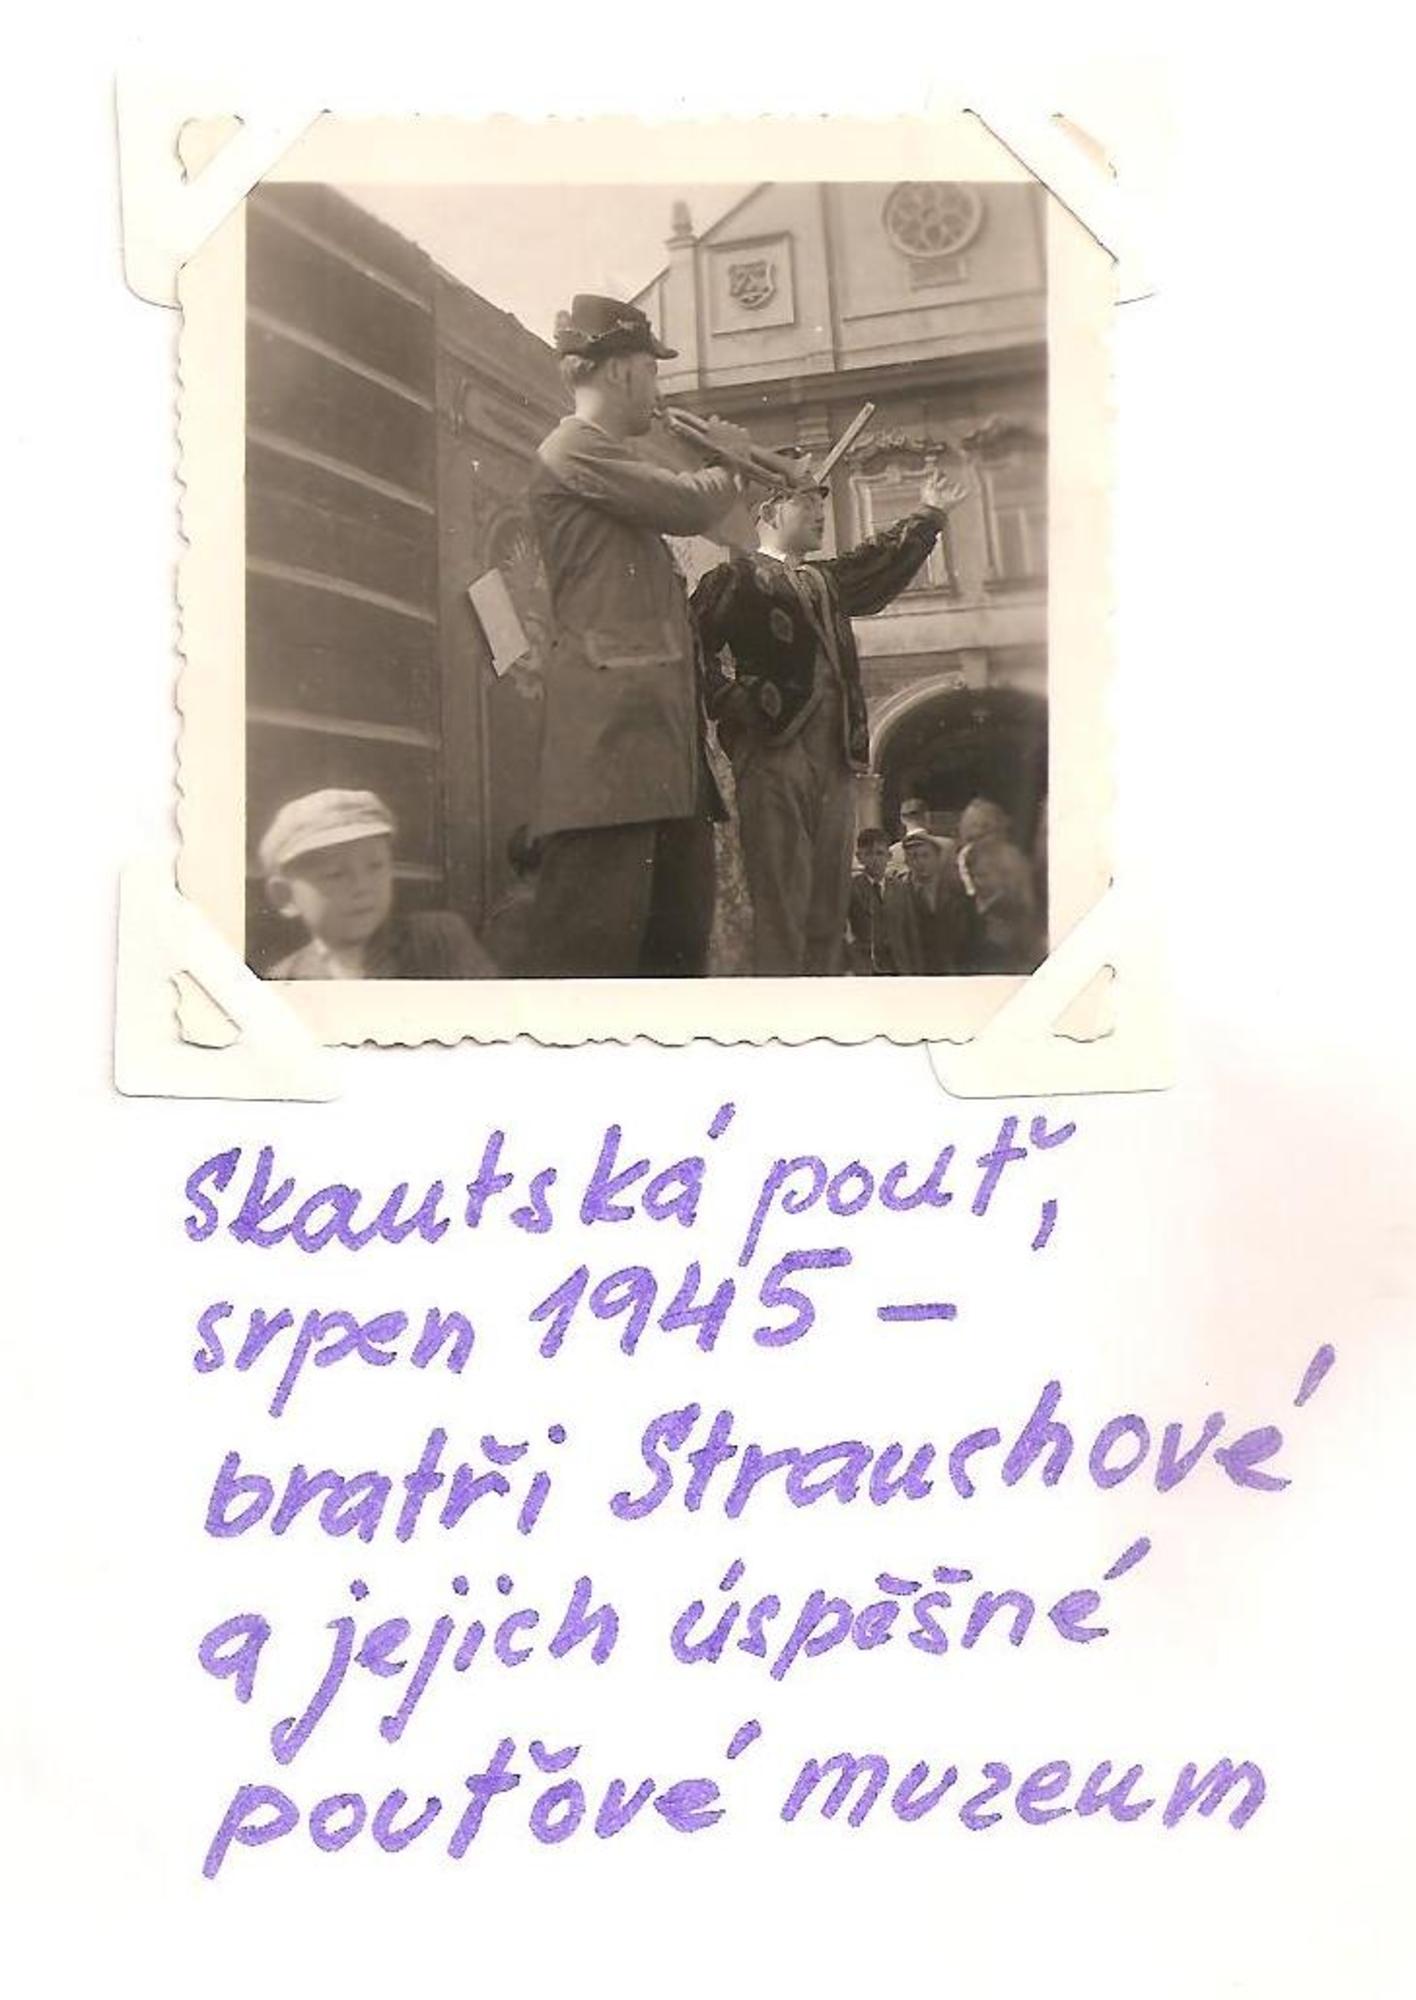 Skautská pouť,
srpen 1945 –
bratři Strauchové
a jejich úspěšné
pouťové muzeum